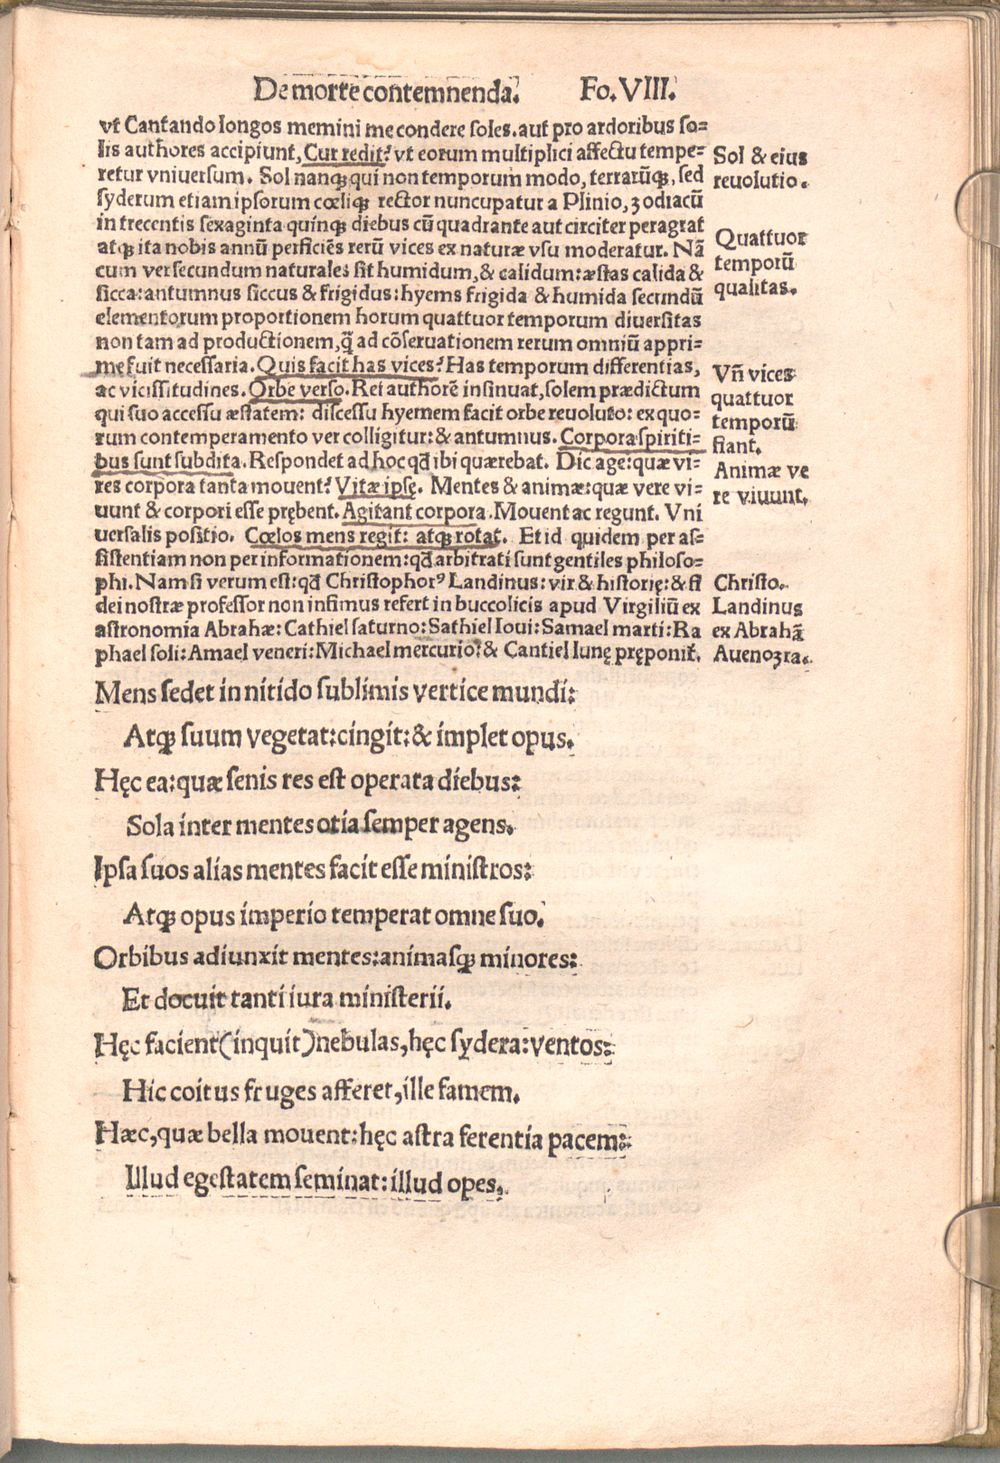 De morte contemnenda. Fo. VIII.
vt Cantando longos memini me condere soles. aut pro ardoribus so⸗
lis authores accipiunt, Cur redit? vt eorum multiplici affectu tempe⸗
retur vniuersum. Sol nanꝗ qui non temporum modo, terrarūꝗ, sed
syderum etiam ipsorum cœliꝗ rector nuncupatur a Plinio, ʒodiacū
in trecentis sexaginta quinꝗ diebus cū quadrante aut circiter peragrat
atꝗ ita nobis annū perficiēs rerū vices ex naturæ vsu moderatur. Nā
cum ver secundum naturales sit humidum, & calidum: æstas calida &
sicca: antumnus siccus & frigidus: hyems frigida & humida secundū
elementorum proportionem horum quattuor temporum diuersitas
non tam ad productionem, q̃ ad cōseruationem rerum omniū appri⸗
me fuit necessaria. Quis facit has vices? Has temporum differentias,
ac vicissitudines. Orbe verso. Rei authorē insinuat, solem prædictum
qui suo accessu æstatem: discessu hyemem facit orbe reuoluto: ex quo⸗
rum contemperamento ver colligitur: & antumnus. Corpora spiriti⸗
bus sunt subdita. Respondet ad hoc qd̄ ibi quærebat. Dic age: quæ vi⸗
res corpora tanta mouent? Vitæ ipsę. Mentes & animæ: quæ vere vi⸗
uunt & corpori esse prębent. Agitant corpora. Mouent ac regunt. Vni
uersalis positio. Cœlos mens regit: atꝗ rotat. Et id quidem per as⸗
sistentiam non per informationem: qd̄ arbitrati sunt gentiles philoso⸗
phi. Nam si verum est: qd̄ Christophorꝰ Landinus: vir & historię: & fi
dei nostræ professor non infimus refert in buccolicis apud Virgiliū ex
astronomia Abrahæ: Cathiel saturno: Sathiel Ioui: Samael marti: Ra
phael soli: Amael veneri: Michael mercurio: & Cantiel lunę pręponit̃.
Sol & eius
reuolutio.
Quattuor
temporū
qualitas.
Vn̄ vices
quattuor
temporū
fiant.
Animæ ve
re viuunt.
Christo.
Landinus
ex Abrahā
Auenoʒra.
Mens sedet in nitido sublimis vertice mundi:
Atꝗ suum vegetat: cingit: & implet opus.
Hęc ea: quæ senis res est operata diebus:
Sola inter mentes otia semper agens.
Ipsa suos alias mentes facit esse ministros:
Atꝗ opus imperio temperat omne suo.
Orbibus adiunxit mentes: animasꝗ minores:
Et docuit tanti iura ministerii.
Hęc facient (inquit) nebulas, hęc sydera: ventos:
Hic coitus fruges afferet, ille famem.
Hæc, quæ bella mouent: hęc astra ferentia pacem:
Illud egestatem seminat: illud opes.